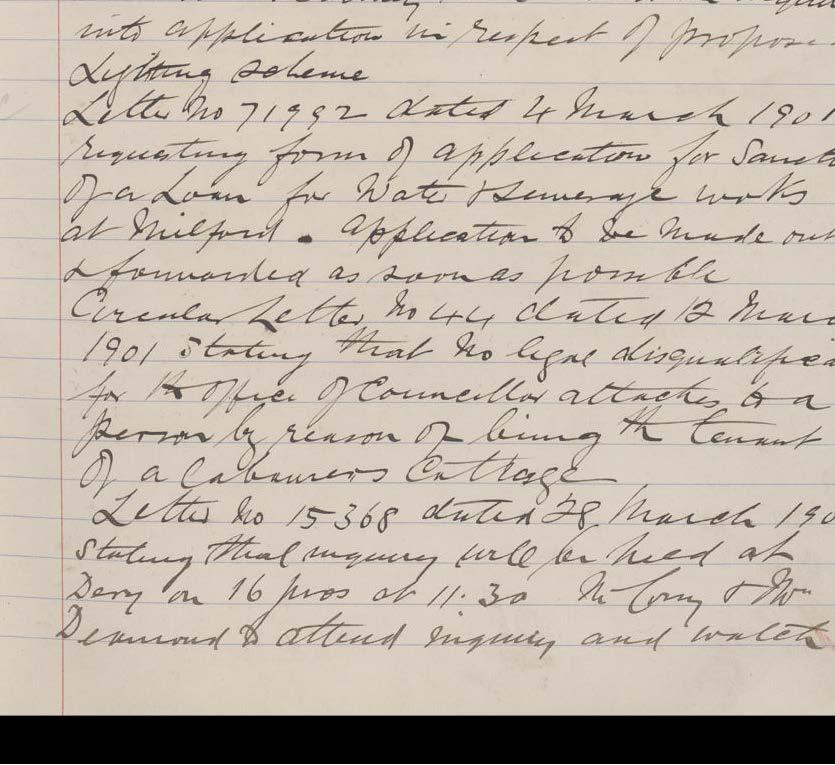 into application in respect of propose
Lighting scheme
Letter No 71992 dated 4 March 1901
requesting form of application for Sanct
of a Loan for Water & Sewerage works
at Milford. Application to be made out
& forwarded as soon as possible
Circular Letter No 44 dated 12 Marc
1901 Stating that No legal disqualifica
for the office of Councillor attaches to a
person by reason of being the tenant
of a Labourers Cottage
Letter No 15368 dated 28 March 190
Stating that inquiry will be held at
Derry on 16 prox at 11.30
to attend inquiry and watch